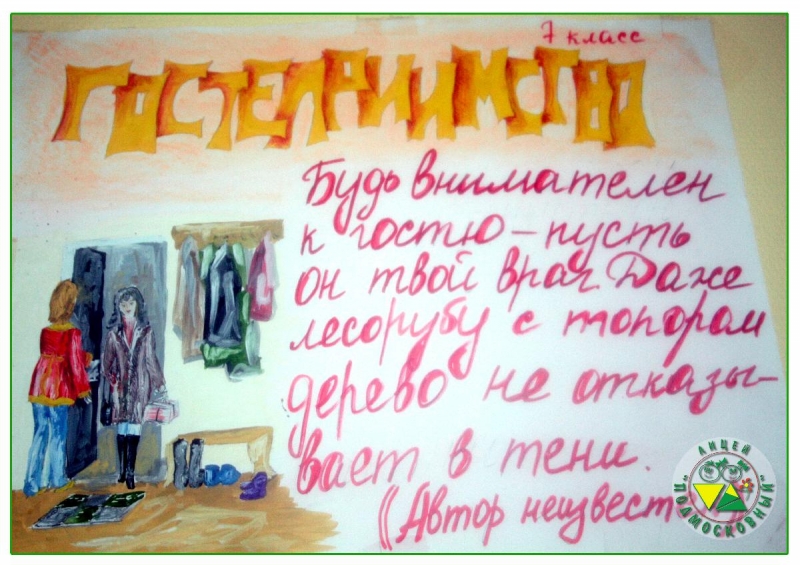 7 класс
ГОСТЕПРИИМСТВО
Будь внимателен
к гостю – пусть
он твой враг. Даже
лесорубу с топором
дерево не отказы-
вает в тени.
(Автор неизвест
ЛИЦЕЙ
"ПОДМОСКОВНЫЙ"